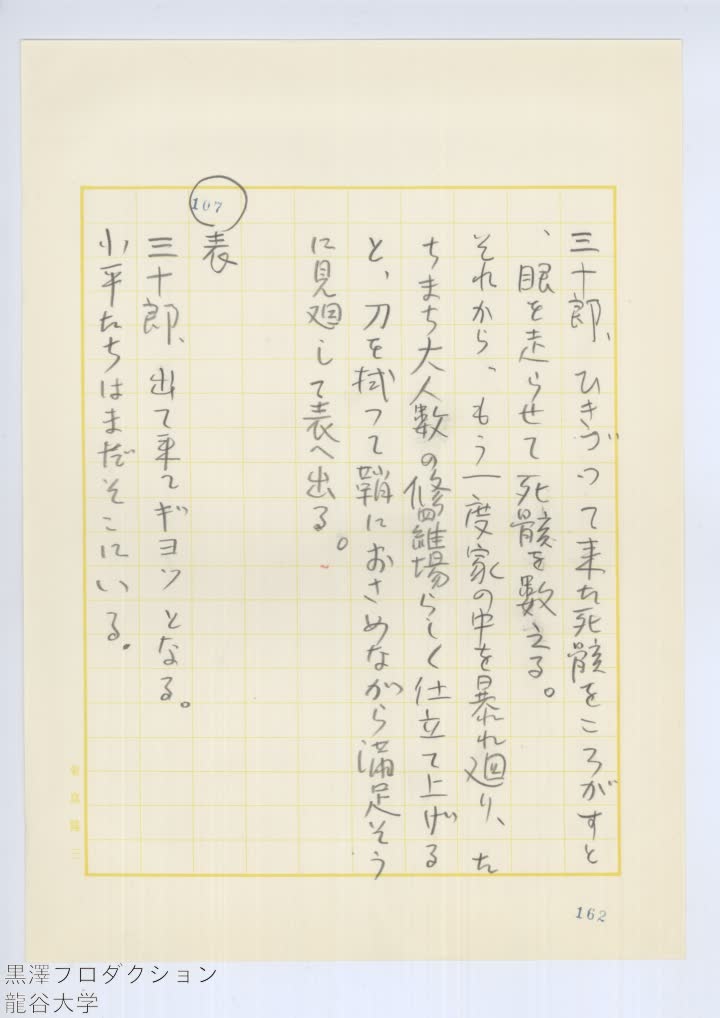 三十郎、ひきづつて来た死骸をころがすと
、眼を走らせて死骸を数える。
それから、もう一度家の中を暴れ廻り、た
ちまち大人数の修羅場らしく仕立て上げる
と、刀を拭つて鞘におさめながら満足そう
に見廻して表へ出る。
107
表
三十郎、出て来てギヨツとなる。
小平たちはまだそこにいる。
162
黒澤プロダクション
龍谷大学